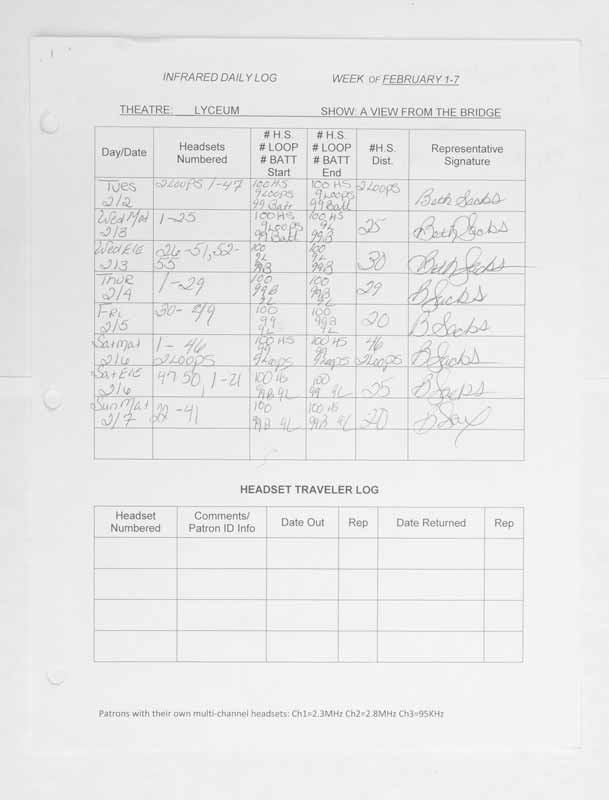 INFRARED DAILY LOG WEEK OF FEBRUARY 1-7
THEATRE: LYCEUM SHOW: A VIEW FROM THE BRIDGE
Day/Date
Headsets
Numbered
# H.S.
# LOOP
# BATT
Start
# H.S.
# LOOP
# BATT
End
#H.S.
Dist.
Representative
Signature
Tues
2/2
2 LOOPS 1-47
100 HS
9 Loops
99 Batt
100 HS
9 Loops
99 Batt
2 Loops
Beth Sachs
Wed Mat
2/3
1-25
100 HS
9 Loops
99 Batt
100 HS
9L
99B
25
Beth Sachs
Wed EVE
2/3
26-51, 52-
55
100
9L
99B
100
9L
99B
30
Beth Sachs
Thur
2/4
1-29
100
99B
9L
100
99B
9L
29
B Sachs
Fri
2/5
100
99
9L
100
99B
9L
20
B Sachs
Sat Mat
2/6
1-46
2 Loops
100 HS
99
9 Loops
100 HS
99
9 Loops
46
2 Loops
B Sachs
Sat EVE
2/6
47-50, 1-21
100 HS
99B 9L
100
99 9L
25
B Sachs
Sun Mat
2/7
22-41
100
99B 9L
100 HS
99B 9L
20
HEADSET TRAVELER LOG
Headset
Numbered
Comments/
Patron ID Info
Date Out
Rep
Date Returned
Rep
Patrons with their own multi-channel headsets: Ch1=2.3MHz Ch2=2.8MHz Ch3=95KHz